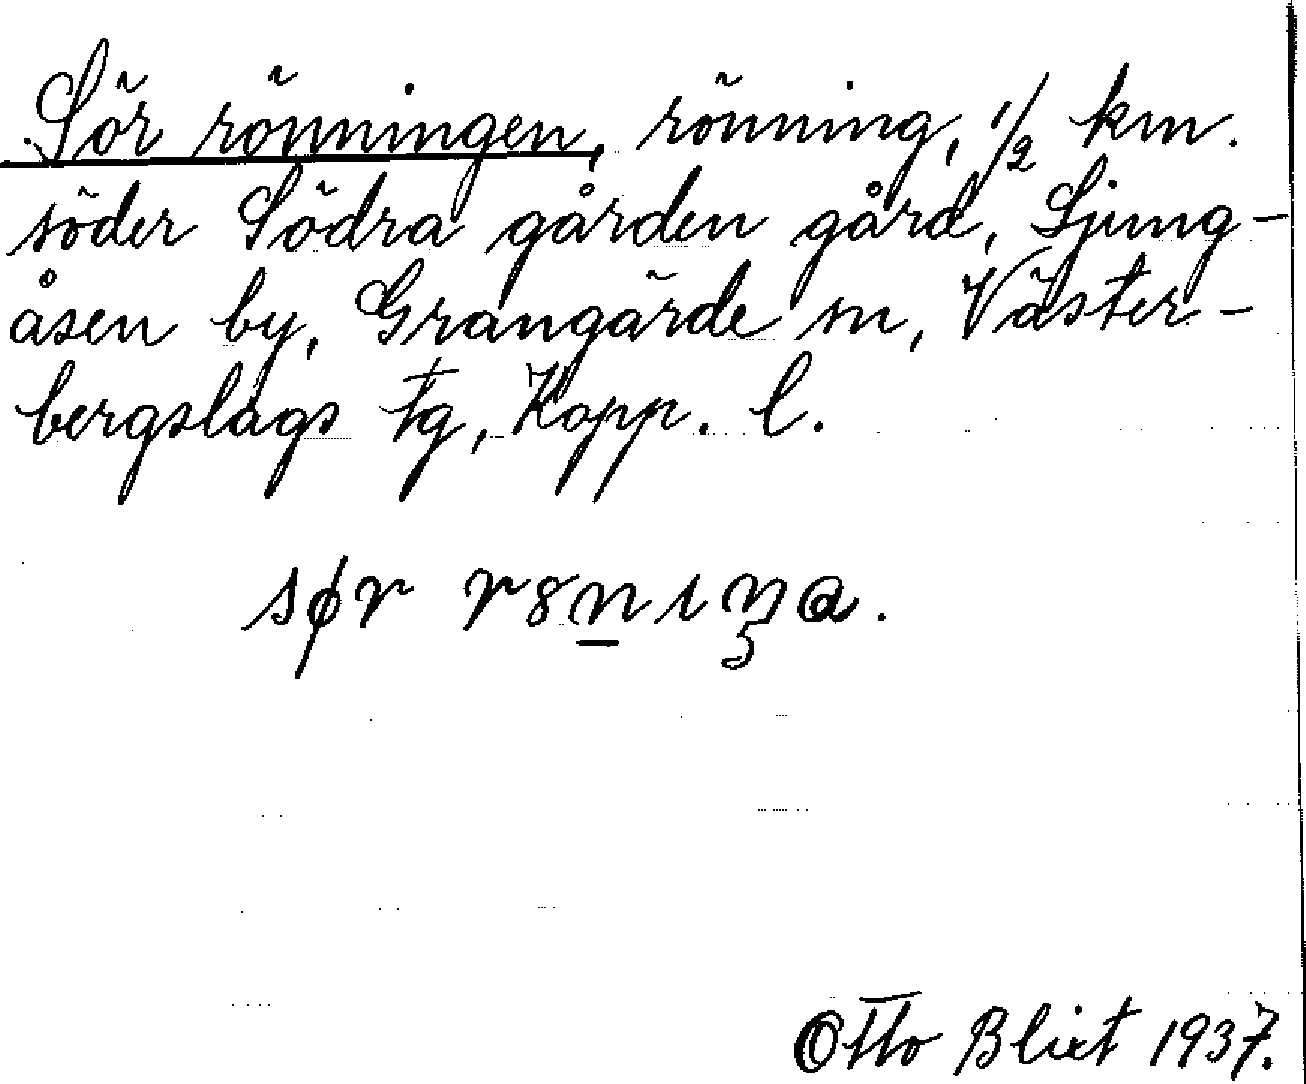 Sör rönningen, rönning, 1/2 km.
söder Södra gården gård, Ljung-
åsen by, Grangärde sn, Väster-
bergslags tg, Kopp. l.
Otto Blixt 1937.